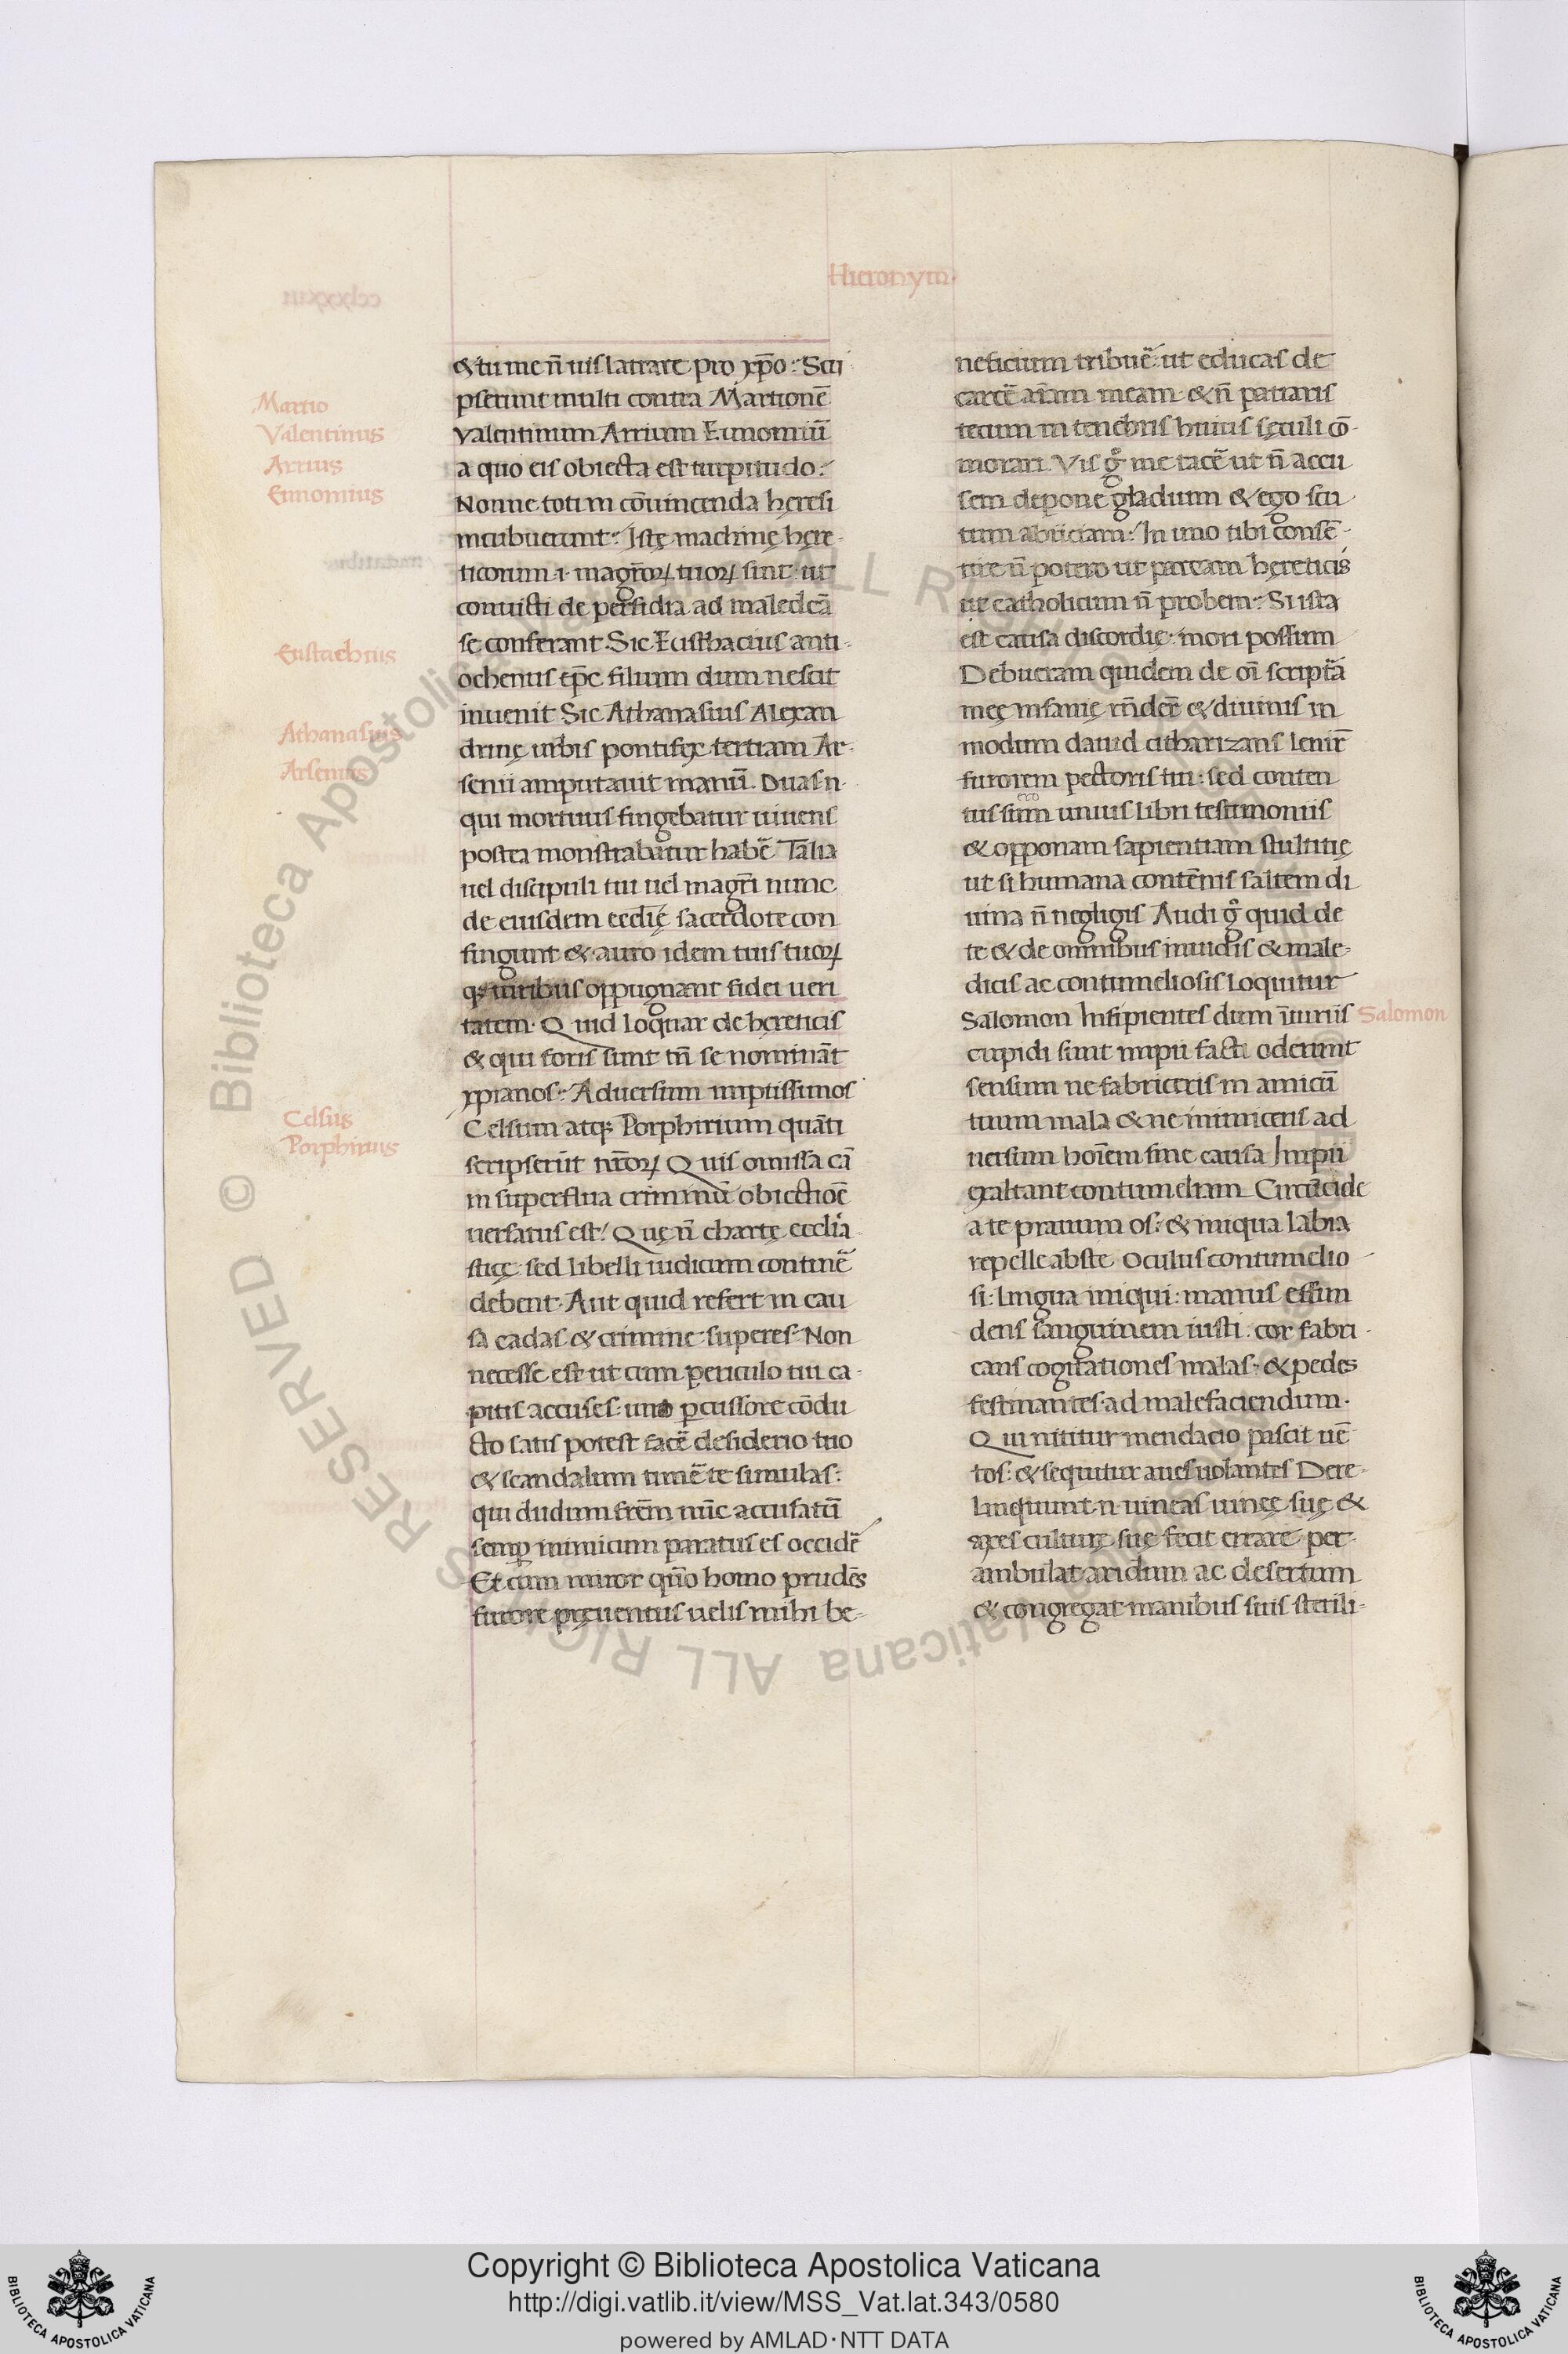 Hieronym.
& tu me n̄ uis latrare pro xp̄o: Scri
pserunt multi contra Martionē
valentinum Arrium Eunomiū
a quo eis obiecta est turpitudo:
Nonne totim cōuincenda hęresi
incubuerunt: Istę machinę hęre-
ticorum .i. magr̄oꝝ tuoꝝ sunt ut
conuicti de perfidia ad maledcā
se conferant. Sic Eusthacius anti-
ochenus ep̄c filium dum nescit
inuenit Sic Athanasius Alexan
drinę urbis pontifex tertiam Ar-
senii amputauit manū. Duas .n.
qui mortuus fingebatur uiuens
postea monstrabatur habē Talia
uel discipuli tui uel magr̄i nunc
de eiusdem eccl̄ię sacerdote con
fingunt & auro idem tuis tuoꝝ
qꝫ uiribus oppugnant fidei ueri
tatem. Quid loquar de hęreticis
& qui foris sunt tn̄ se nomināt
xp̄ianos: Aduersum impiissimos
Celsum atqꝫ Porphirium quāti
scripserūt nr̄oꝝ Quis omissa cā
in superflua criminū obiectiōe
uersatus est: Quę n̄ chartę eccl̄ia
sticę sed libelli iudicum continē
debent. Aut quid refert in cau
sa cadas & crimine superes Non
necesse est ut cum periculo tui ca-
pitis accuses: uno ꝑcussore cōdu
cto satis potest facē desiderio tuo
& scandalum timē te simulas:
qui dudum frēm nūc accusatū
semꝑ inimicum paratus es occidē
Et cum miror quō homo prudēs
furore pręuentus uelis mihi be-
neficium tribuē: ut educas de
carcē aīam meam & n̄ patiaris
tecum in tenebris huius sęculi cō-
morari. Vis gͦ me tacē ut n̄ accu
sem depone gladium & ego scu
tum abiiciam: In uno tibi consē-
tire n̄ potero ut parcam hęreticis
ut catholicum n̄ probem: Si ista
est causa discordię: mori possum
Debueram quidem de oī scriptā
meę insanię rn̄der̄ & diuinis in
modum dauid citharizans lenir̄
furorem pectoris tui: sed conten
tus sum unius libri testimoniis
ero
& opponam sapientiam stultitię
ut si humana contēnis saltem di
uina n̄ negligis Audi gͦ quid de
te & de omnibus inuidis & male-
dicis ac contumeliosis loquitur
Salomon Insipientes dum īiuriis
cupidi sunt impii facti oderunt
sensum ne fabriceris in amicū
tuum mala & ne inimiceris ad
uersum hoīem sine causa Impii
exaltant contumeliam Circūcide
a te prauum os: & iniqua labia
repelle abste Oculus contumelio
si: lingua iniqui: manus effun
dens sanguinem iusti: cor fabri-
cans cogitationes malas: & pedes
festinantes ad malefaciendum.
Qui nititur mendacio pascit uē
tos: & sequitur aues uolantes Dere-
linquunt .n. uineas uineę suę &
axes culturę suę fecit errare per-
ambulat aridum ac desertum
& congregat manibus suis sterili-
Martio
Valentinus
Arrius
Eunomius
Eustachius
Athanasius
Arsenius
Celsus
Porphirius
Salomon
© Biblioteca Apostolica Vaticana ALL RIGHTS RESERVED
Copyright © Biblioteca Apostolica Vaticana
http://digi.vatlib.it/view/MSS_Vat.lat.343/0580
powered by AMLAD·NTT DATA
BIBLIOTECA APOSTOLICA VATICANA
BIBLIOTECA APOSTOLICA VATICANA